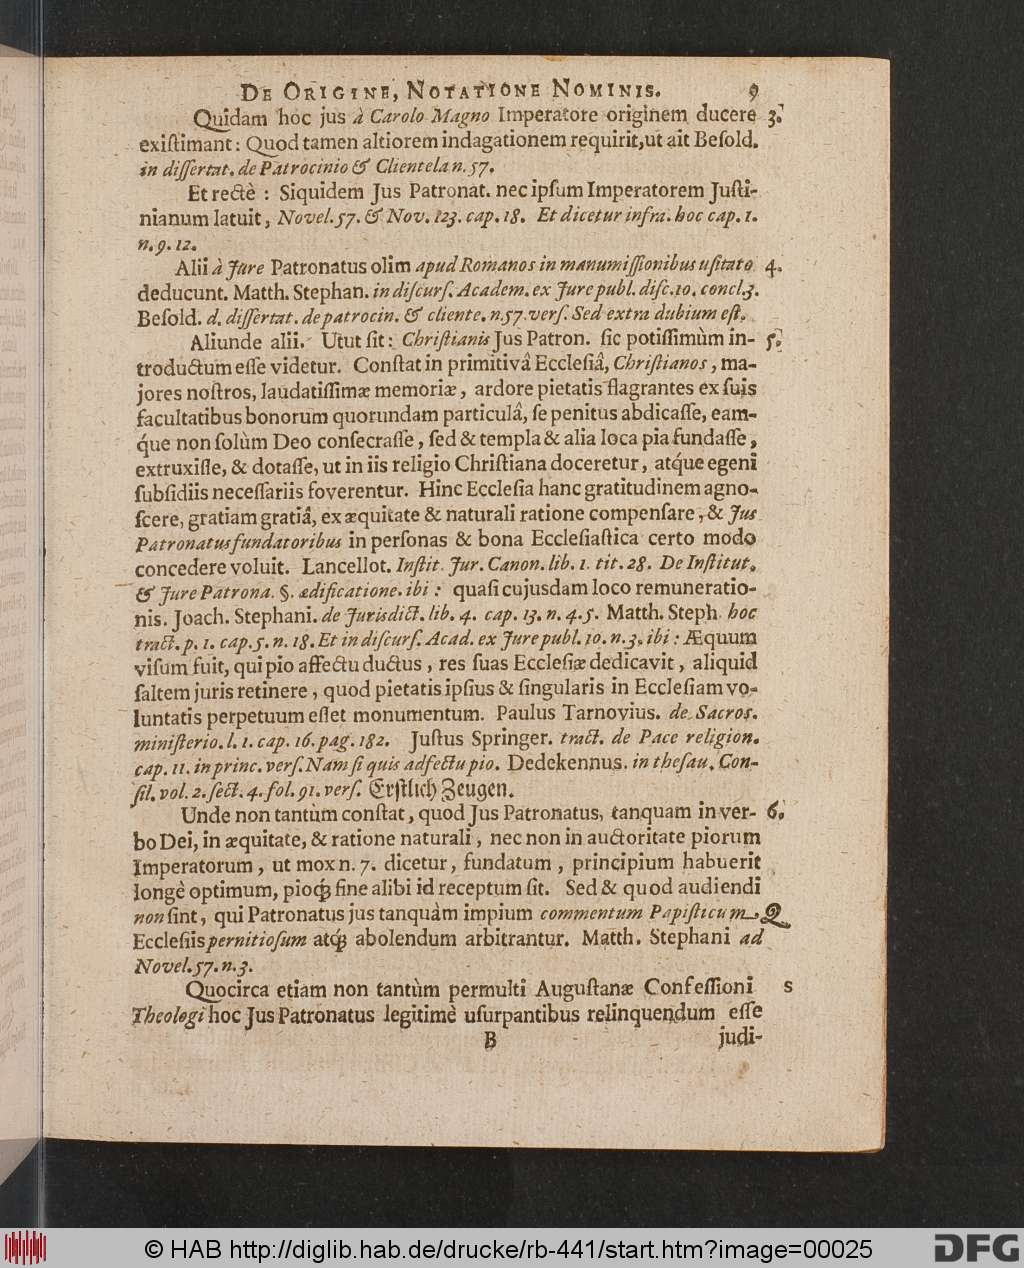 De Origine, Notatione Nominis. 9
Quidam hoc jus à Carolo Magno Imperatore originem ducere 3.
exiſtimant: Quod tamen altiorem indagationem requirit, ut ait Beſold.
in diſſertat. de Patrocinio & Clientela n. 57.
Et rectè : Siquidem Jus Patronat. nec ipſum Imperatorem Juſti-
nianum latuit, Novel. 57. & Nov. 123. cap. 18. Et dicetur infra. hoc cap. 1.
n. 9. 12.
Alii à Jure Patronatus olim apud Romanos in manumiſſionibus uſitato 4.
deducunt. Matth. Stephan. in diſcurſ. Academ. ex Jure publ. diſc. 10. concl. 3.
Beſold. d. diſſertat. de patrocin. & cliente. n. 57. verſ. Sed extra dubium eſt.
Aliunde alii. Utut ſit: Chriſtianis Jus Patron. ſic potiſſimùm in- 5.
troductum eſſe videtur. Conſtat in primitivâ Eccleſiâ, Chriſtianos, ma-
jores noſtros, laudatiſſimæ memoriæ, ardore pietatis flagrantes ex ſuis
facultatibus bonorum quorundam particulâ, ſe penitus abdicaſſe, eam-
q́ue non ſolùm Deo conſecraſſe, ſed & templa & alia loca pia fundaſſe,
extruxiſſe, & dotaſſe, ut in iis religio Chriſtiana doceretur, atq́ue egeni
ſubſidiis neceſſariis foverentur. Hinc Eccleſia hanc gratitudinem agno-
ſcere, gratiam gratiâ, ex æquitate & naturali ratione compenſare, & Jus
Patronatus fundatoribus in perſonas & bona Eccleſiaſtica certo modo
concedere voluit. Lancellot. Inſtit. Jur. Canon. lib. 1. tit. 28. De Inſtitut.
& Jure Patrona. §. ædificatione. ibi : quaſi cujusdam loco remuneratio-
nis. Joach. Stephani. de Jurisdict. lib. 4. cap. 13. n. 4. 5. Matth. Steph. hoc
tract. p. 1. cap. 5. n. 18. Et in diſcurſ. Acad. ex Jure publ. 10. n. 3. ibi : Æquum
viſum fuit, qui pio affectu ductus, res ſuas Eccleſiæ dedicavit, aliquid
ſaltem juris retinere, quod pietatis ipſius & ſingularis in Eccleſiam vo-
luntatis perpetuum eſſet monumentum. Paulus Tarnovius. de Sacroſ.
miniſterio. l. 1. cap. 16. pag. 182. Juſtus Springer. tract. de Pace religion.
cap. 11. in princ. verſ. Nam ſi quis adfectu pio. Dedekennus. in theſau. Con-
ſil. vol. 2. ſect. 4. fol. 91. verſ. Erſtlich Zeugen.
Unde non tantùm conſtat, quod Jus Patronatus, tanquam in ver- 6.
bo Dei, in æquitate, & ratione naturali, nec non in auctoritate piorum
Imperatorum, ut mox n. 7. dicetur, fundatum, principium habuerit
longè optimum, pioq́ꝫ fine alibi id receptum ſit. Sed & quod audiendi
non ſint, qui Patronatus jus tanquàm impium commentum Papiſticum,
Eccleſiis pernitioſum atq́ꝫ abolendum arbitrantur. Matth. Stephani ad
Novel. 57. n. 3.
Quocirca etiam non tantùm permulti Auguſtanæ Confeſſioni s
Theologi hoc Jus Patronatus legitimè uſurpantibus relinquendum eſſe
B judi-
© HAB http://diglib.hab.de/drucke/rb-441/start.htm?image=00025
DFG